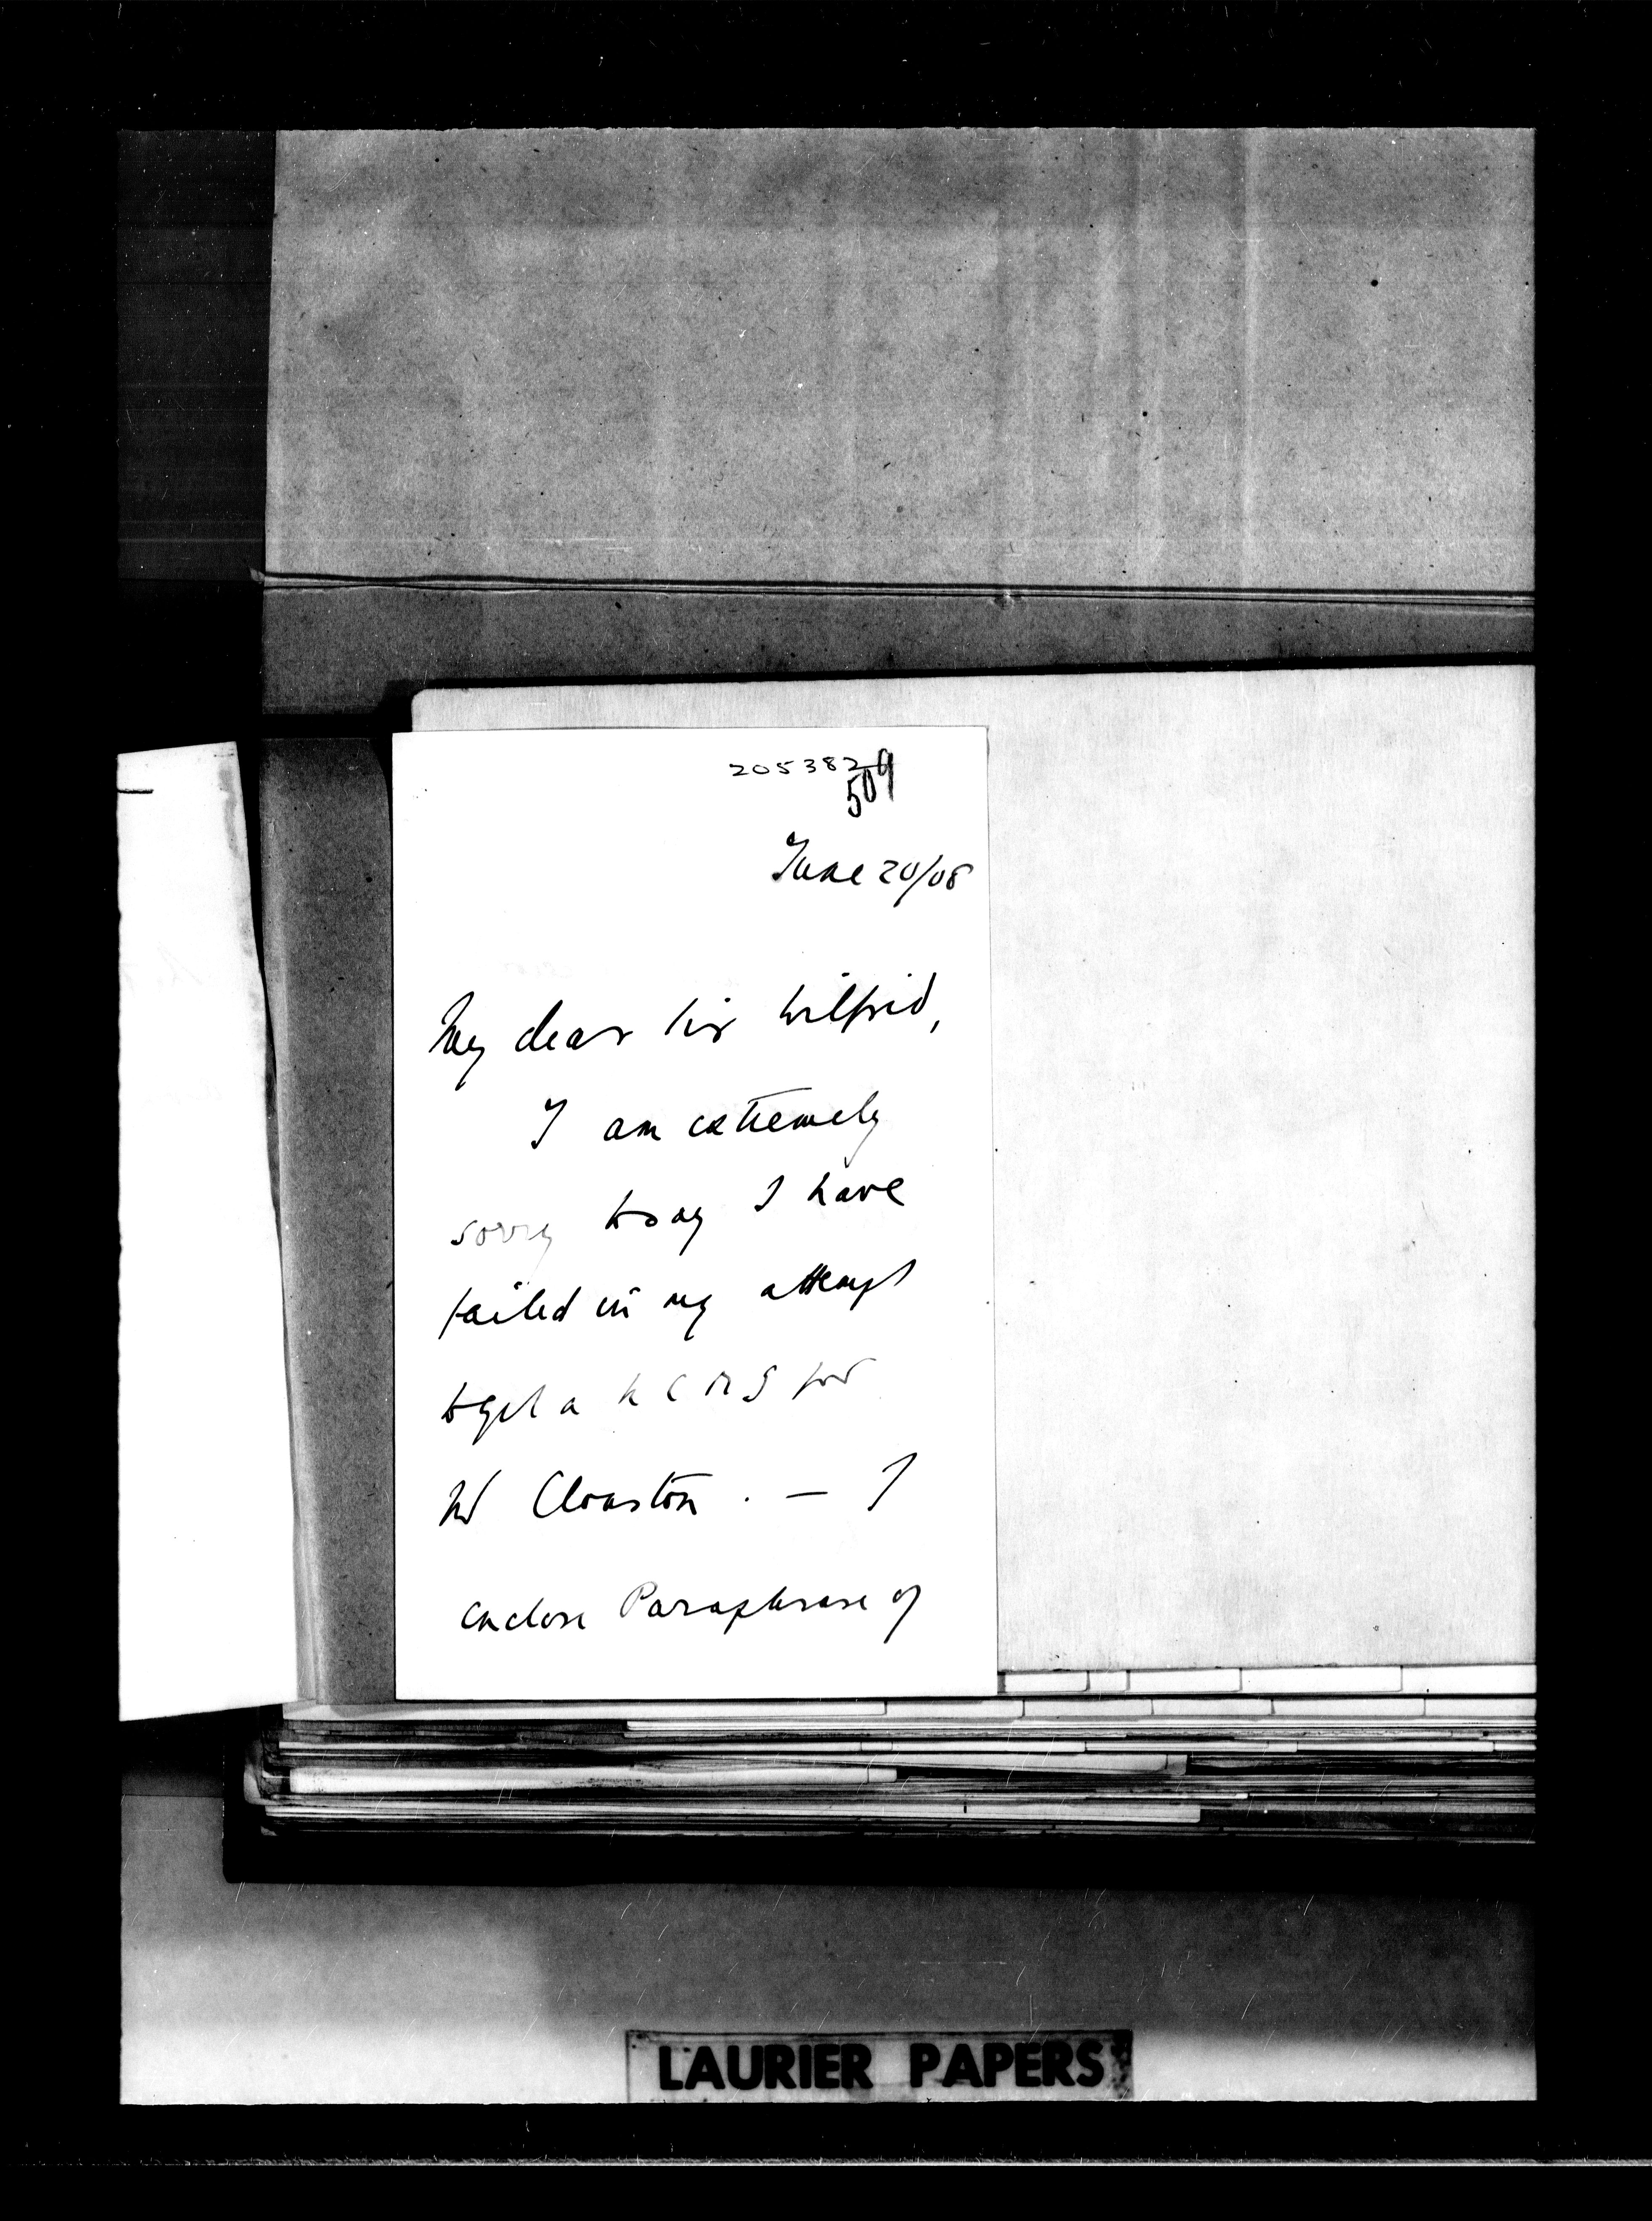 205382
509
June 20/08
My dear Sir Wilfrid,
I am extremely
sorry to say I have
failed in my attempt
to get a K C M G for
Mr Clouston. — I
enclose Paraphrase of
LAURIER PAPERS